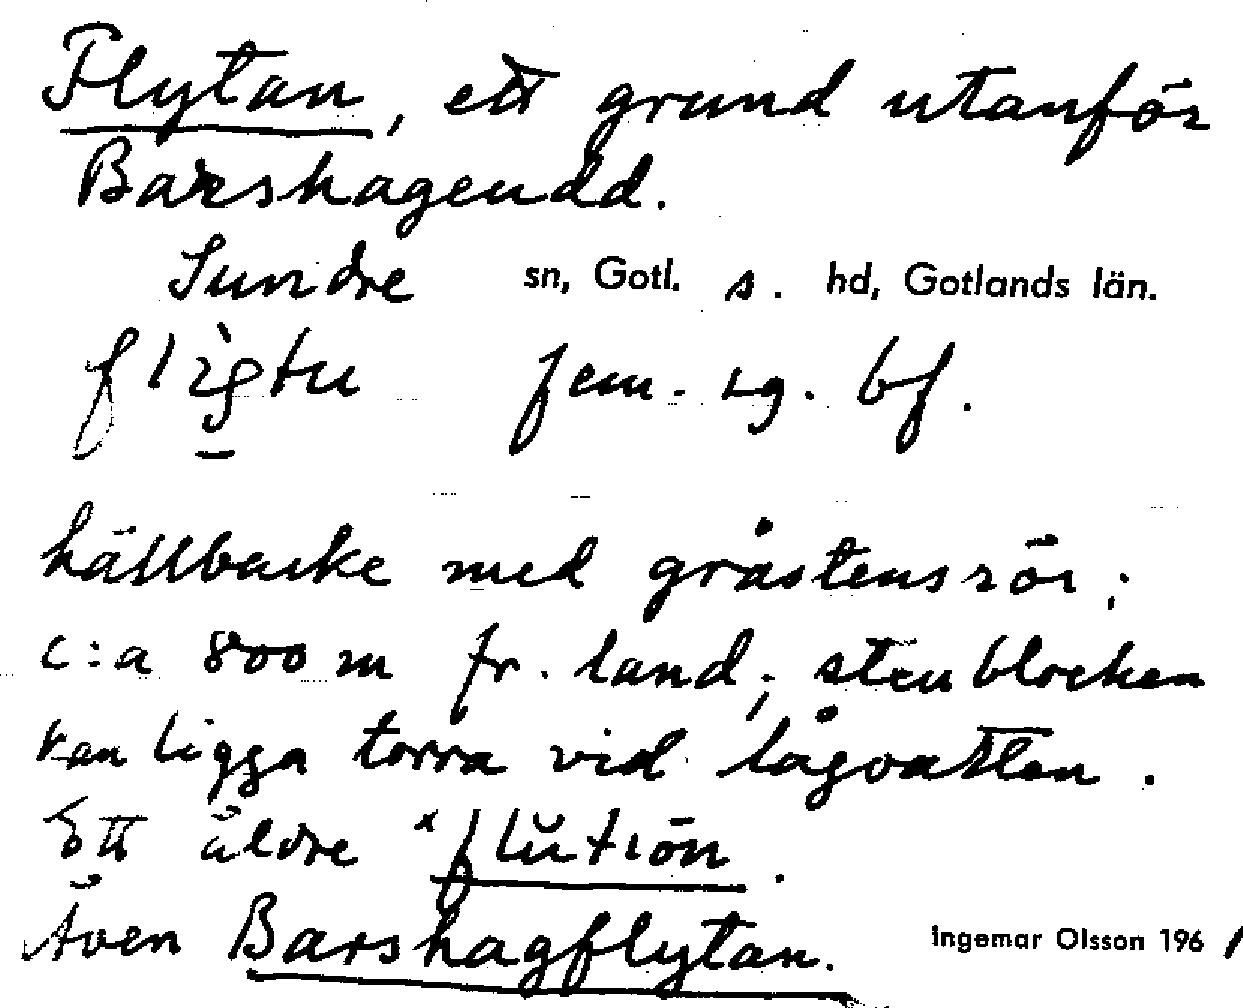 Flytan, ett grund utanför
Barshageudd.
Sundre sn, Gotl. s. hd, Gotlands län.
fem. sg. bf.
hällbacke med gråstensrör;
c:a 800 m fr. land; stenblocken
kan ligga torra vid lågvatten.
Ett äldre *flŭtiōn.
Även Barshagflytan. Ingemar Olsson 1961